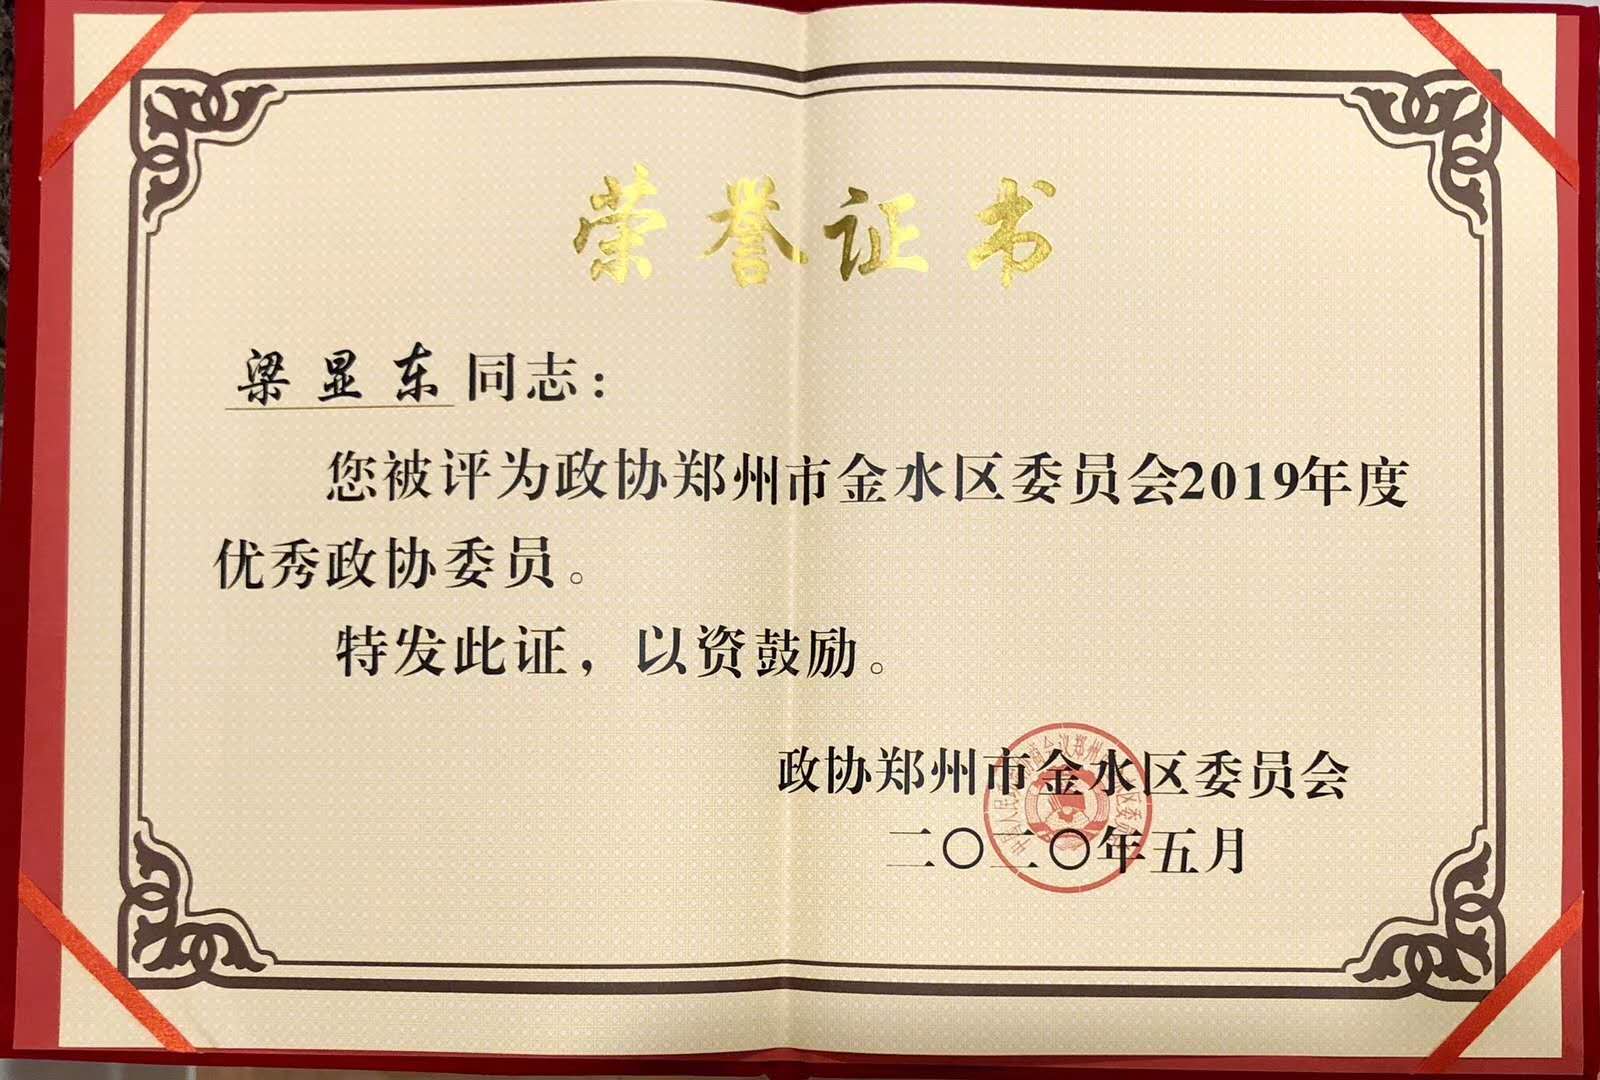 荣誉证书
梁显东同志：
您被评为政协郑州市金水区委员会2019年度
优秀政协委员。
特发此证，以资鼓励。
政协郑州市金水区委员会
二〇二〇年五月